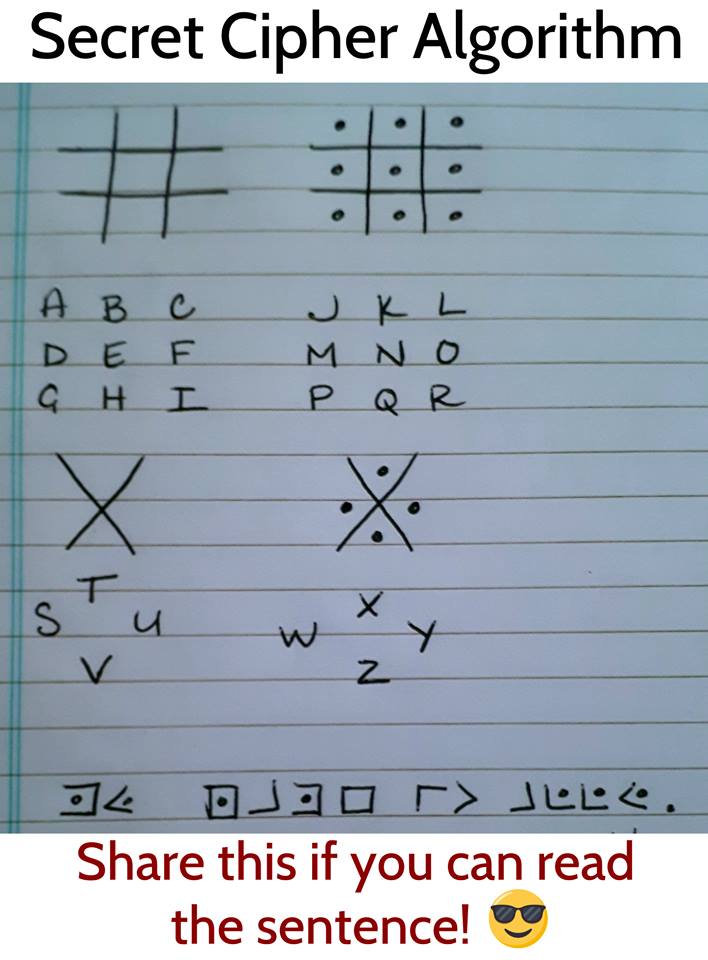 Secret Cipher Algorithm
A B C J K L
D E F M N O
G H I P Q R
T X
S U W Y
V Z
Share this if you can read
the sentence! 😎